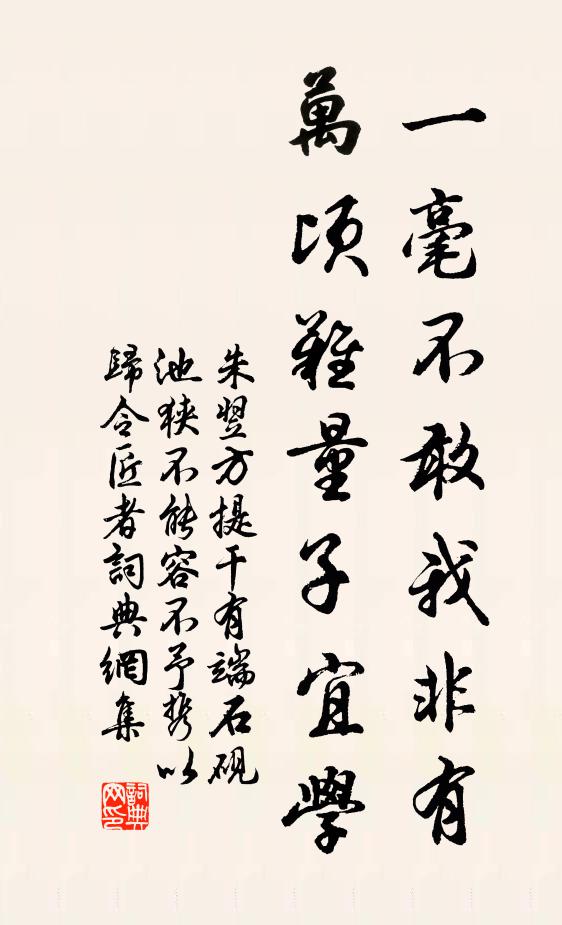 一毫不敢我非有
萬頃難量子宜學
朱翌方提干有端石硯
池狹不能容不予携以
歸令匠者詞典網集
詞典
网印